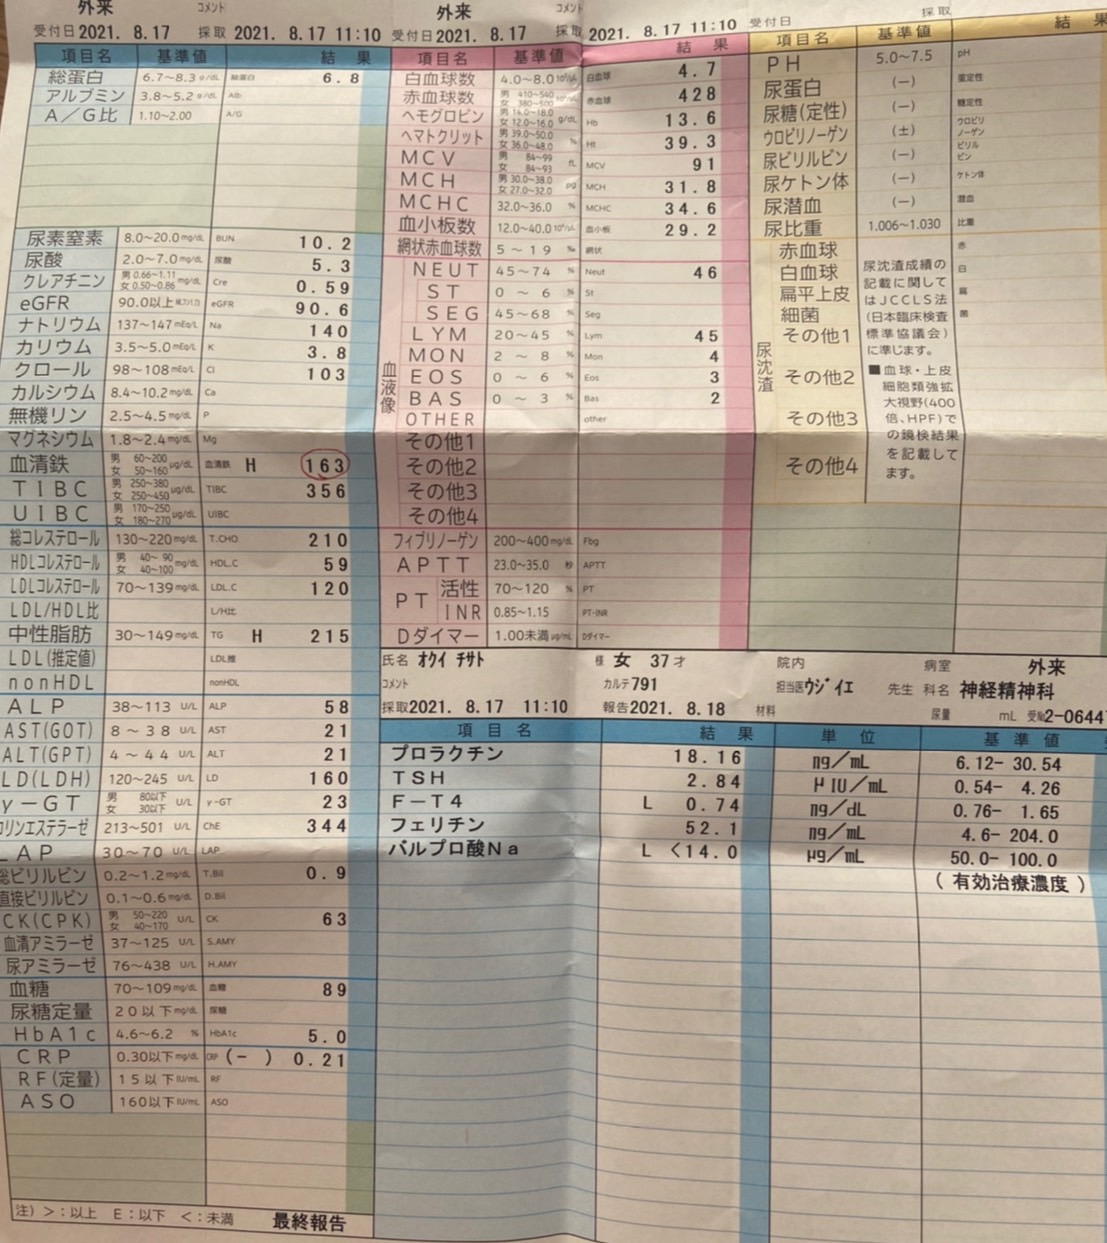 外来 コメント
受付日 2021. 8.17 採取 2021. 8.17 11:10
項目名 基準値 結果
総蛋白 6.7〜8.3 g/dL 総蛋白 6.8
アルブミン 3.8〜5.2 g/dL Alb
A/G比 1.10〜2.00 A/G
尿素窒素 8.0〜20.0 mg/dL BUN 10.2
尿酸 2.0〜7.0 mg/dL 尿酸 5.3
クレアチニン 男 0.66〜1.11 女 0.50〜0.86 mg/dL Cre 0.59
eGFR 90.0以上 eGFR 90.6
ナトリウム 137〜147 mEq/L Na 140
カリウム 3.5〜5.0 mEq/L K 3.8
クロール 98〜108 mEq/L Cl 103
カルシウム 8.4〜10.2 mg/dL Ca
無機リン 2.5〜4.5 mg/dL P
マグネシウム 1.8〜2.4 mg/dL Mg
血清鉄 男 60〜200 女 50〜160 μg/dL 血清鉄 H 163
TIBC 男 250〜380 女 250〜450 μg/dL TIBC 356
UIBC 男 170〜250 女 180〜270 μg/dL UIBC
総コレステロール 130〜220 mg/dL T.CHO 210
HDLコレステロール 男 40〜90 女 40〜100 mg/dL HDL.C 59
LDLコレステロール 70〜139 mg/dL LDL.C 120
LDL/HDL比 L/H比
中性脂肪 30〜149 mg/dL TG H 215
LDL(推定値) LDL推
nonHDL nonHDL
ALP 38〜113 U/L ALP 58
AST(GOT) 8〜38 U/L AST 21
ALT(GPT) 4〜44 U/L ALT 21
LD(LDH) 120〜245 U/L LD 160
γ-GT 男 80以下 女 30以下 U/L γ-GT 23
コリンエステラーゼ 213〜501 U/L ChE 344
LAP 30〜70 U/L LAP
総ビリルビン 0.2〜1.2 mg/dL T.Bil 0.9
直接ビリルビン 0.1〜0.6 mg/dL D.Bil
CK(CPK) 男 50〜220 女 40〜170 U/L CK 63
血清アミラーゼ 37〜125 U/L S.AMY
尿アミラーゼ 76〜438 U/L H.AMY
血糖 70〜109 mg/dL 血糖 89
尿糖定量 20以下 mg/dL 尿糖
HbA1c 4.6〜6.2 % HbA1c 5.0
CRP 0.30以下 mg/dL CRP (- ) 0.21
RF(定量) 15以下 IU/mL RF
ASO 160以下 IU/mL ASO
注) >:以上 E:以下 <:未満 最終報告
外来 コメント
受付日 2021. 8.17 採取 2021. 8.17 11:10
項目名 基準値 結果
白血球数 4.0〜8.0 白血球 4.7
赤血球数 男 410〜540 女 380〜500 赤血球 428
ヘモグロビン 男 14.0〜18.0 女 12.0〜16.0 g/dL Hb 13.6
ヘマトクリット 男 39.0〜50.0 女 36.0〜48.0 % Ht 39.3
MCV 男 84〜99 女 84〜93 fL MCV 91
MCH 男 30.0〜38.0 女 27.0〜32.0 pg MCH 31.8
MCHC 32.0〜36.0 % MCHC 34.6
血小板数 12.0〜40.0 血小板 29.2
網状赤血球数 5〜19 ‰ 網状
血液像
NEUT 45〜74 % Neut 46
ST 0〜6 % St
SEG 45〜68 % Seg
LYM 20〜45 % Lym 45
MON 2〜8 % Mon 4
EOS 0〜6 % Eos 3
BAS 0〜3 % Bas 2
OTHER other
その他1
その他2
その他3
その他4
フィブリノーゲン 200〜400 mg/dL Fbg
APTT 23.0〜35.0 秒 APTT
PT 活性 70〜120 % PT
INR 0.85〜1.15 PT-INR
Dダイマー 1.00未満 μg/mL Dダイマー
受付日 採取
項目名 基準値 結果
PH 5.0〜7.5 pH
尿蛋白 (−) 蛋定性
尿糖(定性) (−) 糖定性
ウロビリノーゲン (±) ウロビリノーゲン
尿ビリルビン (−) ビリルビン
尿ケトン体 (−) ケトン体
尿潜血 (−) 潜血
尿比重 1.006〜1.030 比重
尿沈渣
赤血球 赤
白血球 白
扁平上皮 扁
細菌 菌
その他1
その他2
その他3
その他4
尿沈渣成績の
記載に関して
はJCCLS法
(日本臨床検査
標準協議会)
に準じます。
■血球・上皮
細胞類強拡
大視野(400
倍、HPF)で
の鏡検結果
を記載して
ます。
氏名 オクイ チサト 様 女 37才 院内 病室 外来
コメント カルテ 791 担当医 ウジイエ 先生 科名 神経精神科
採取 2021. 8.17 11:10 報告 2021. 8.18 材料 尿量 mL 受№ 2-0644
項目名 結果 単位 基準値
プロラクチン 18.16 ng/mL 6.12- 30.54
TSH 2.84 μIU/mL 0.54- 4.26
F-T4 L 0.74 ng/dL 0.76- 1.65
フェリチン 52.1 ng/mL 4.6- 204.0
バルプロ酸Na L <14.0 μg/mL 50.0- 100.0
(有効治療濃度)